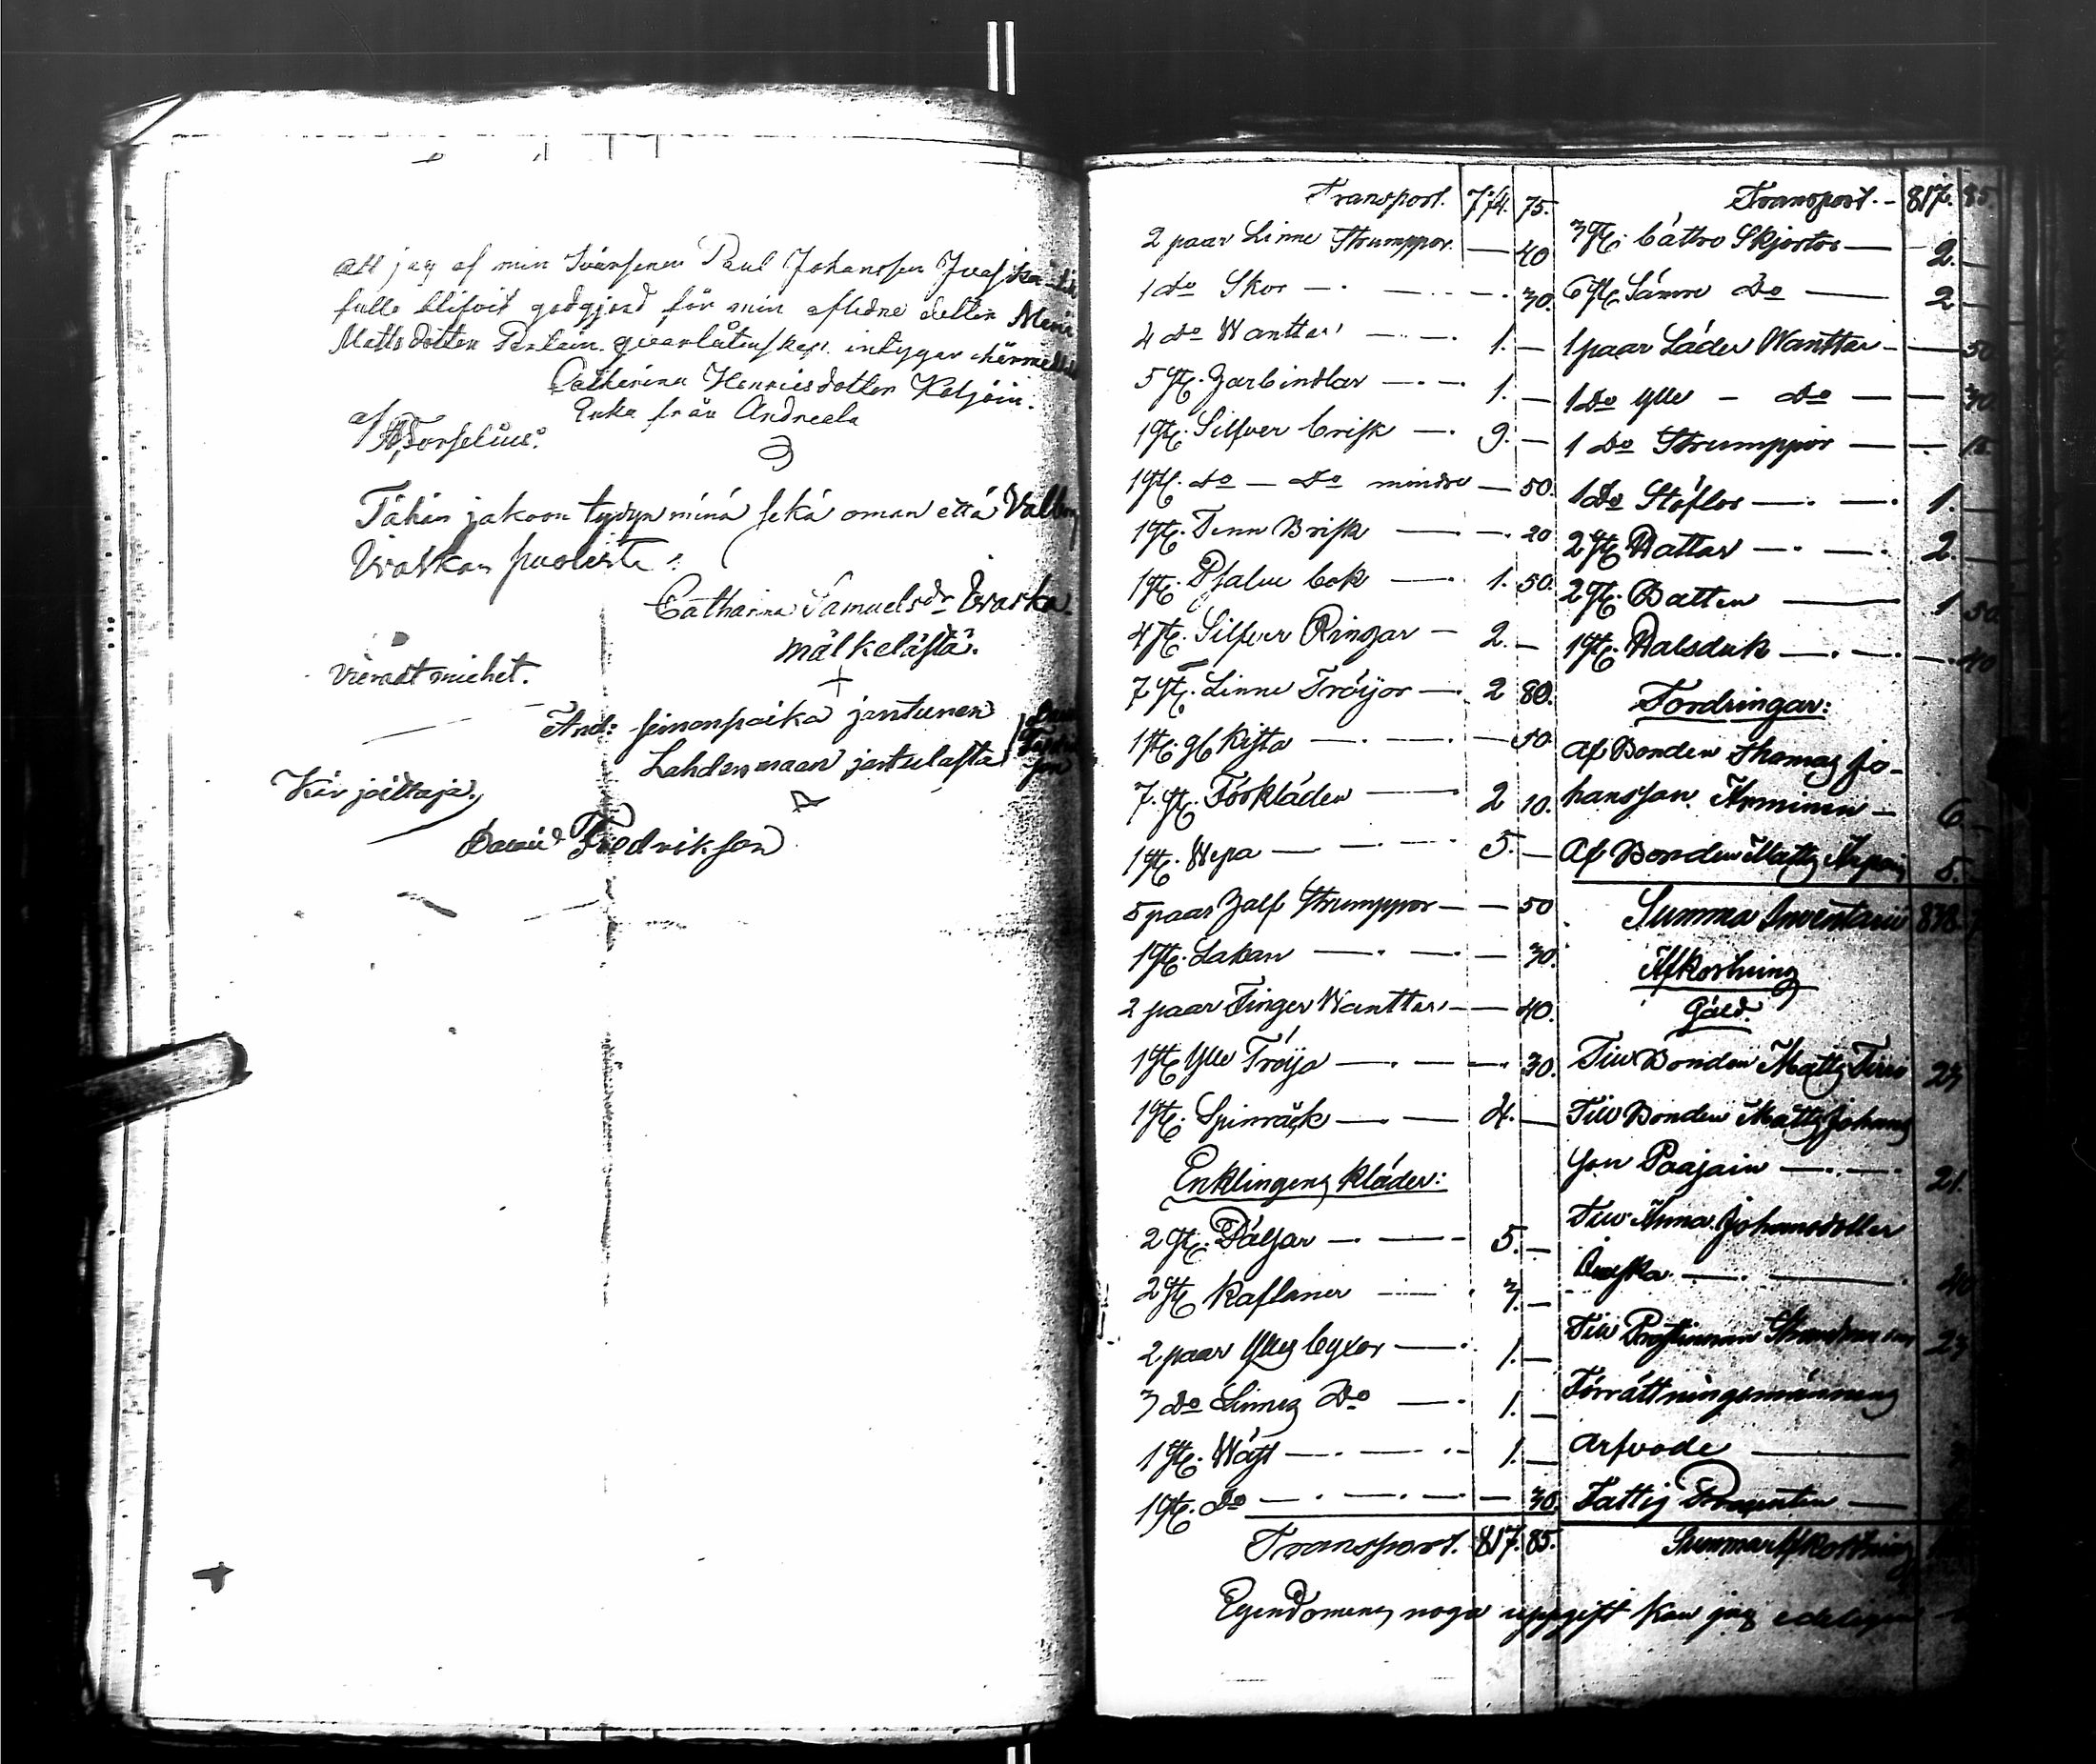 att jag af min Svärsonen Paul Johansson
fullo blifvit godgjord för min aflidne dotter
Matts dotter qvarlåtenskap. intygar härmedelst
Catherina Henricsdotter
Enka från Andreela
af
Tähän jakoon tydyn minä sekä oman että
puolesta
Catharina Samuelsdr
mälkelästä.
+
vierat miehet.
And: Simonpoika jantunen
Lahdenmaan jantulasta
Kirjoittaja.
David Fredrikson
Transport. 774. 75.
2 paar Linne Strumppor. — 40
1 do Skor — . — . 30.
4 do Wanttar — . — 1. —
5 st. — . — 1. —
1 st. Silfver brisk — . 9. —
1 st. do — do mindre — 50.
1 st. Tenn Brisk — . 20
1 st. Psalm bok — . 1. 50.
4 st. Silfver Ringar — 2. —
7 st. Linne Tröijor — . 2 80.
1 st. gl Kista — . — . — 50
7. st. Förkläden — 2 10.
1 st. Wepa — — . — 5. —
5 paar half Strumppor — — 50
1 st. Lakan — . — . — 30.
2 paar Finger Wanttar — — 40.
1 st Ylle Tröija — . — . 30.
1 st. Spinråck — . — 4. —
Enklingens kläder:
2 st. Pälsar — . — 5. —
2 st Kaftaner — 3. —
2 paar Ylles byxor — . 1. —
3 do Linnes Do — . 1. —
1 st. Wäst — . — . — 1. —
1 st. Do — . — . — . — 30.
Transport. 817. 85.
Transport. — 817. 85.
3 st. bättre Skjortor — 2. —
6 st. Sämre Do — 2 —
1 paar Läder Wanttar — — 50
1 do Ylle — do — — 30
1 do Strumppor — — . 15.
1 do Stöflor — . — . 1. —
2 st Hattar — . — . 2 —
2 st. Bälten — 1 50
1 st. Halsduk — . — . — . 40
Fordringar:
Af Bonden Thomas Jo-
hansson — 6. —
Af Bonden Matts 5.
Summa Inventarii 838.
Afkortning
Gäld.
Till Bonden Matts 23
Till Bonden Matts Johans
son Paajain — . — . 21.
Till Anna Johansdotter
— . — . 40
Till 23
Förrättningsmännens
arfvode —
Fattig Procenten —
Summa Afkortning
Egendomens noga uppgift kan jag edeligen